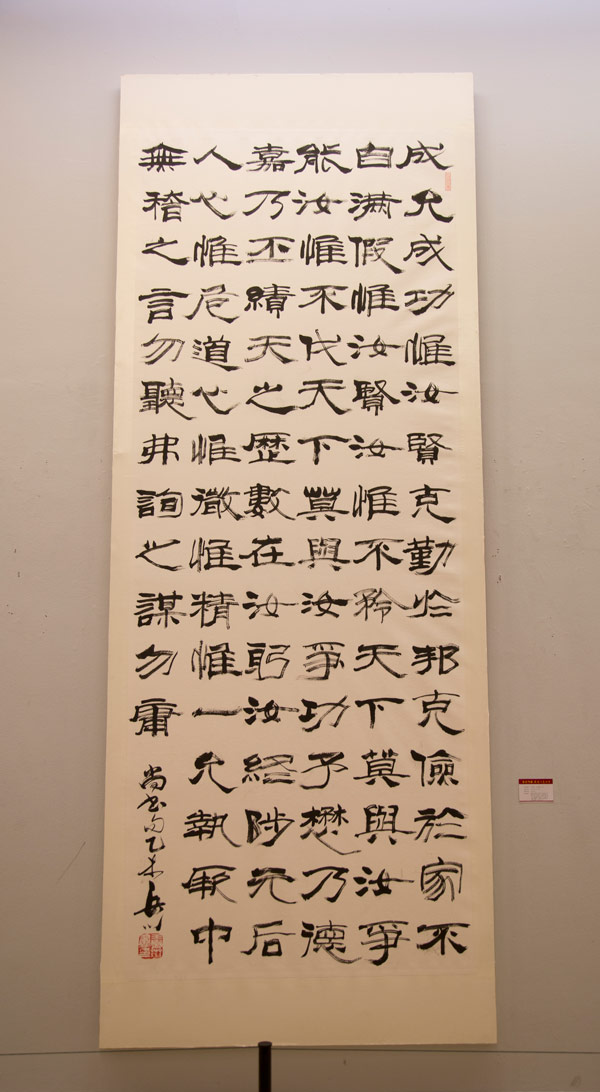 成允成功惟汝賢克勤於邦克儉於家不
自滿假惟汝賢汝惟不矜天下莫與汝爭
能汝惟不伐天下莫與汝爭功予懋乃德
嘉乃丕績天之歷數在汝躬汝終陟元后
人心惟危道心惟微惟精惟一允執厥中
無稽之言勿聽弗詢之謀勿庸
尚書句乙未岳川